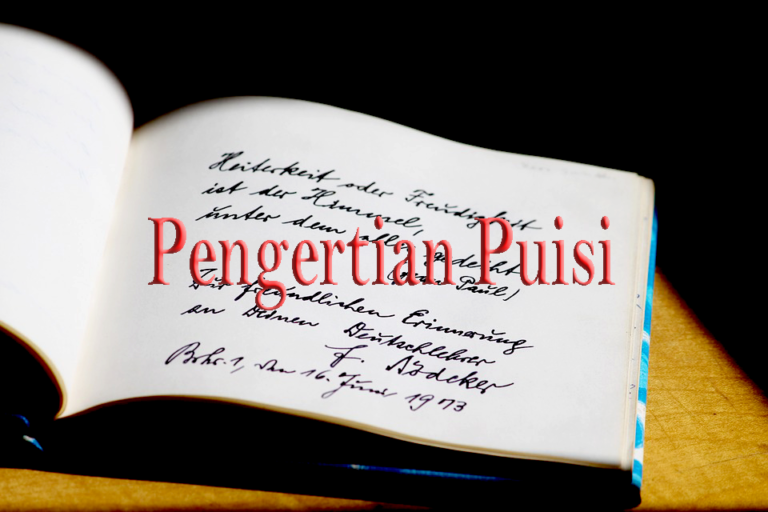 Heiterkeit oder Freudigkeit
ist der Himmel,
unter dem alles gedeiht
Pengertian Puisi
(Jean Paul)
Zur freundlichen Erinnerung
an Deinen Deutschlehrer
F.
den 16. Juni 1973